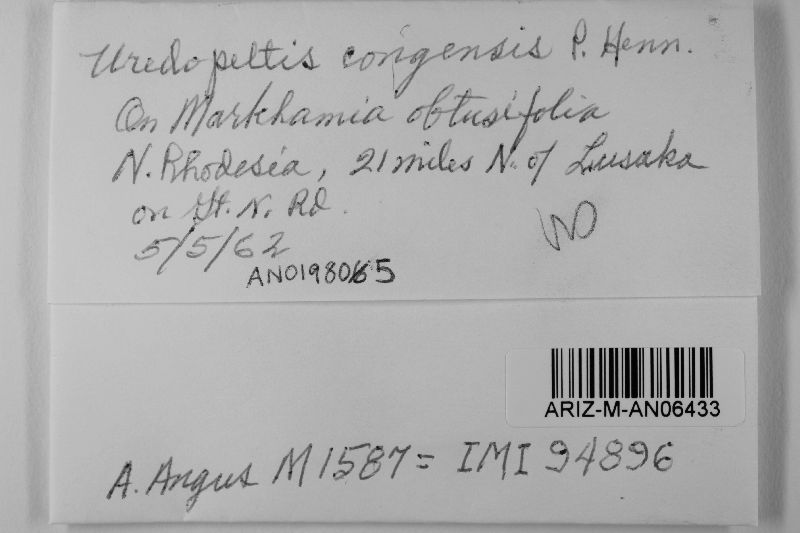 Uredopeltis congensis P. Henn.
On Markhamia obtusifolia
N. Rhodesia, 21 miles N. of Lusaka
on Gt. N. Rd.
5/5/62
AN019805
ARIZ-M-AN06433
A. Angus M1587 = IMI 94896